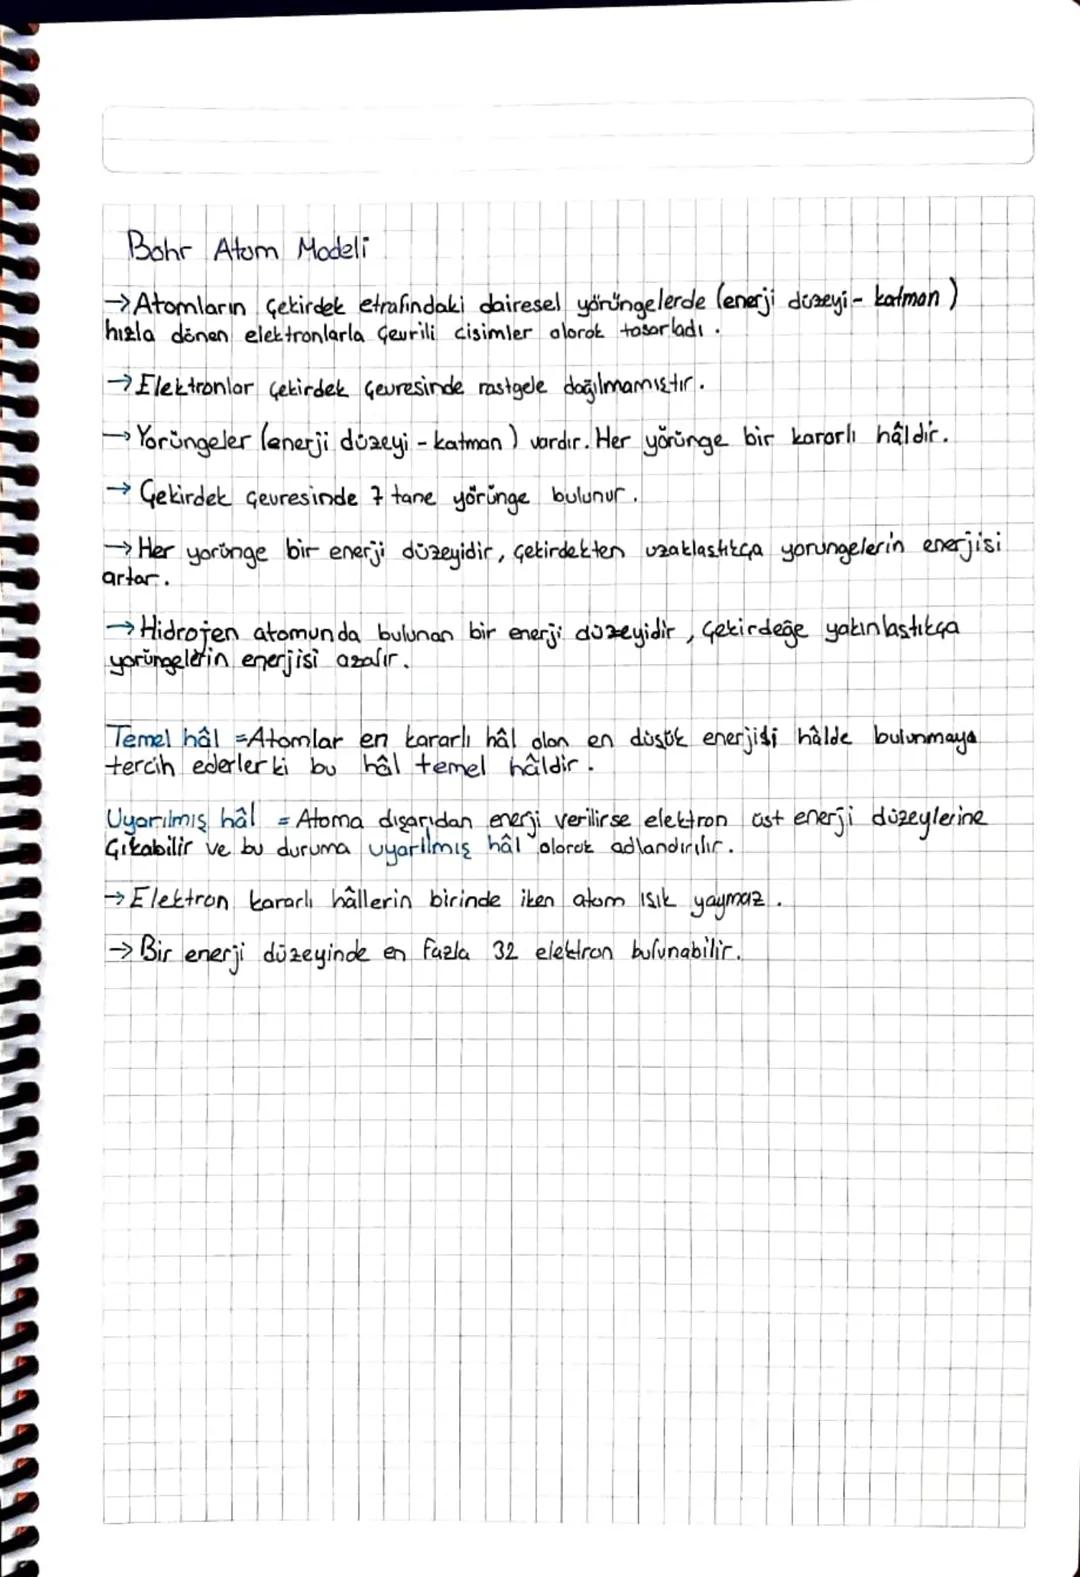 Bohr Atom Modeli
→Atomların çekirdek etrafındaki dairesel yörüngelerde (enerji düzeyi- katman)
hızla dönen elektronlarla çevrili cisimler olarak tasarladı.
→Elektronlar çekirdek çevresinde rastgele dağılmamıştır.
→Yörüngeler (enerji düzeyi - katman) vardır. Her yörünge bir kararlı hâldir.
→ Çekirdek çevresinde 7 tane yörünge bulunur.
→Her yorünge bir enerji düzeyidir, çekirdekten uzaklastıkça yorungelerin enerjisi
artar.
→Hidrojen atomunda bulunan bir enerji düzeyidir, çekirdeğe yakınlastıkça
yorüngelerin enerjisi azalır.
Temel hâl =Atomlar en kararlı hâl olan en düşük enerjili hâlde bulunmaya
tercih ederler ki bu hâl temel hâldir.
Uyarılmış hâl = Atoma dışarıdan enerji verilirse elektron üst enerji düzeylerine
çıkabilir ve bu duruma uyarılmış hâl olarak adlandırılır.
→Elektron kararlı hâllerin birinde iken atom ışık yaymaz.
→Bir enerji düzeyinde en fazla 32 elektron bulunabilir.